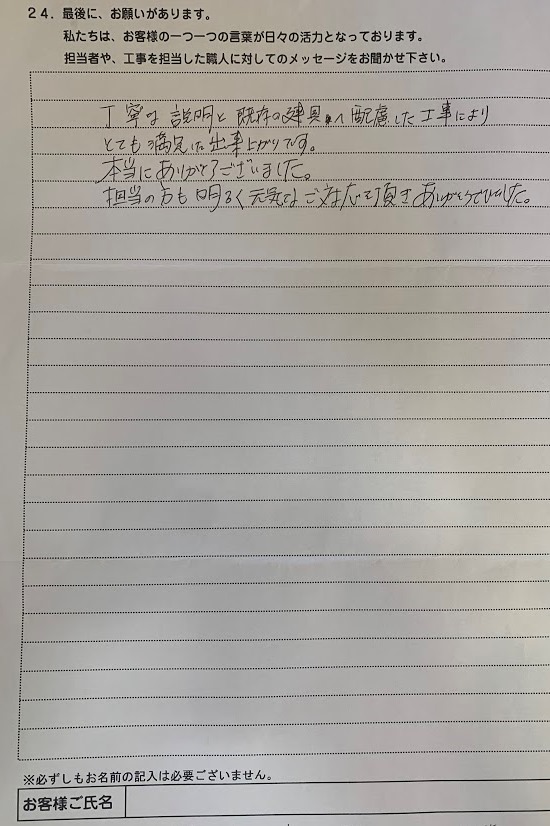 24．最後に、お願いがあります。
私たちは、お客様の一つ一つの言葉が日々の活力となっております。
担当者や、工事を担当した職人に対してのメッセージをお聞かせ下さい。
丁寧な説明と既存の建具への配慮した工事により
とても満足した出来上がりです。
本当にありがとうございました。
担当の方も明るく元気なご対応を頂きありがとうございました。
※必ずしもお名前の記入は必要ございません。
お客様ご氏名